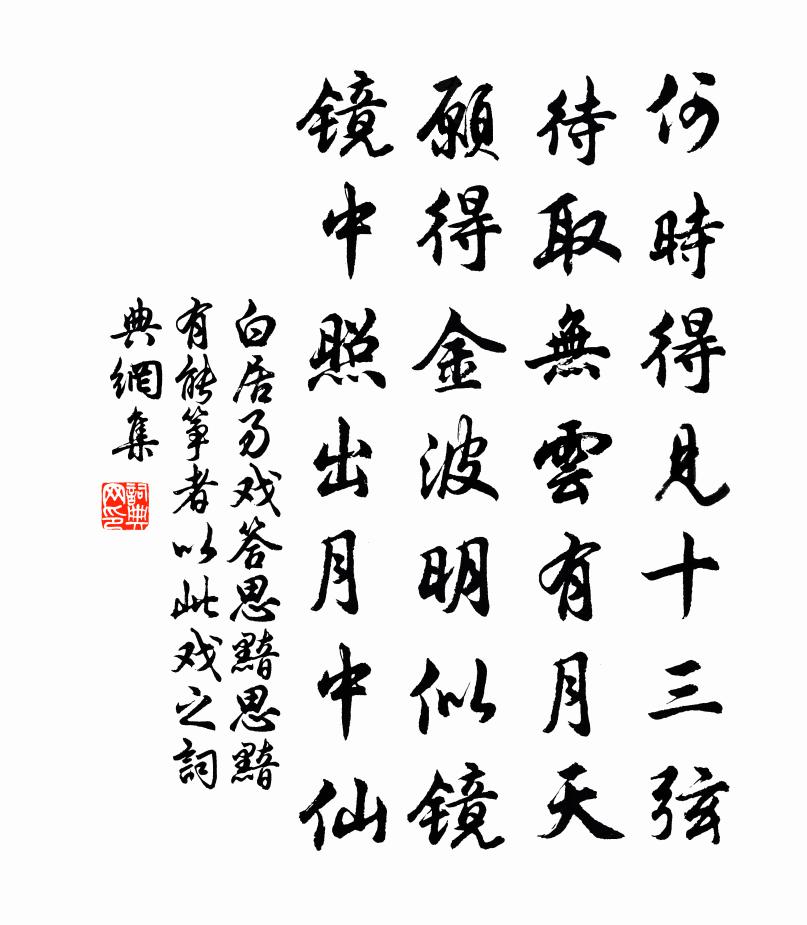 何時得見十三弦
待取無雲有月天
願得金波明似鏡
鏡中照出月中仙
白居易戏答思黯思黯
有能箏者以此戏之詞
典網集
詞典
网印